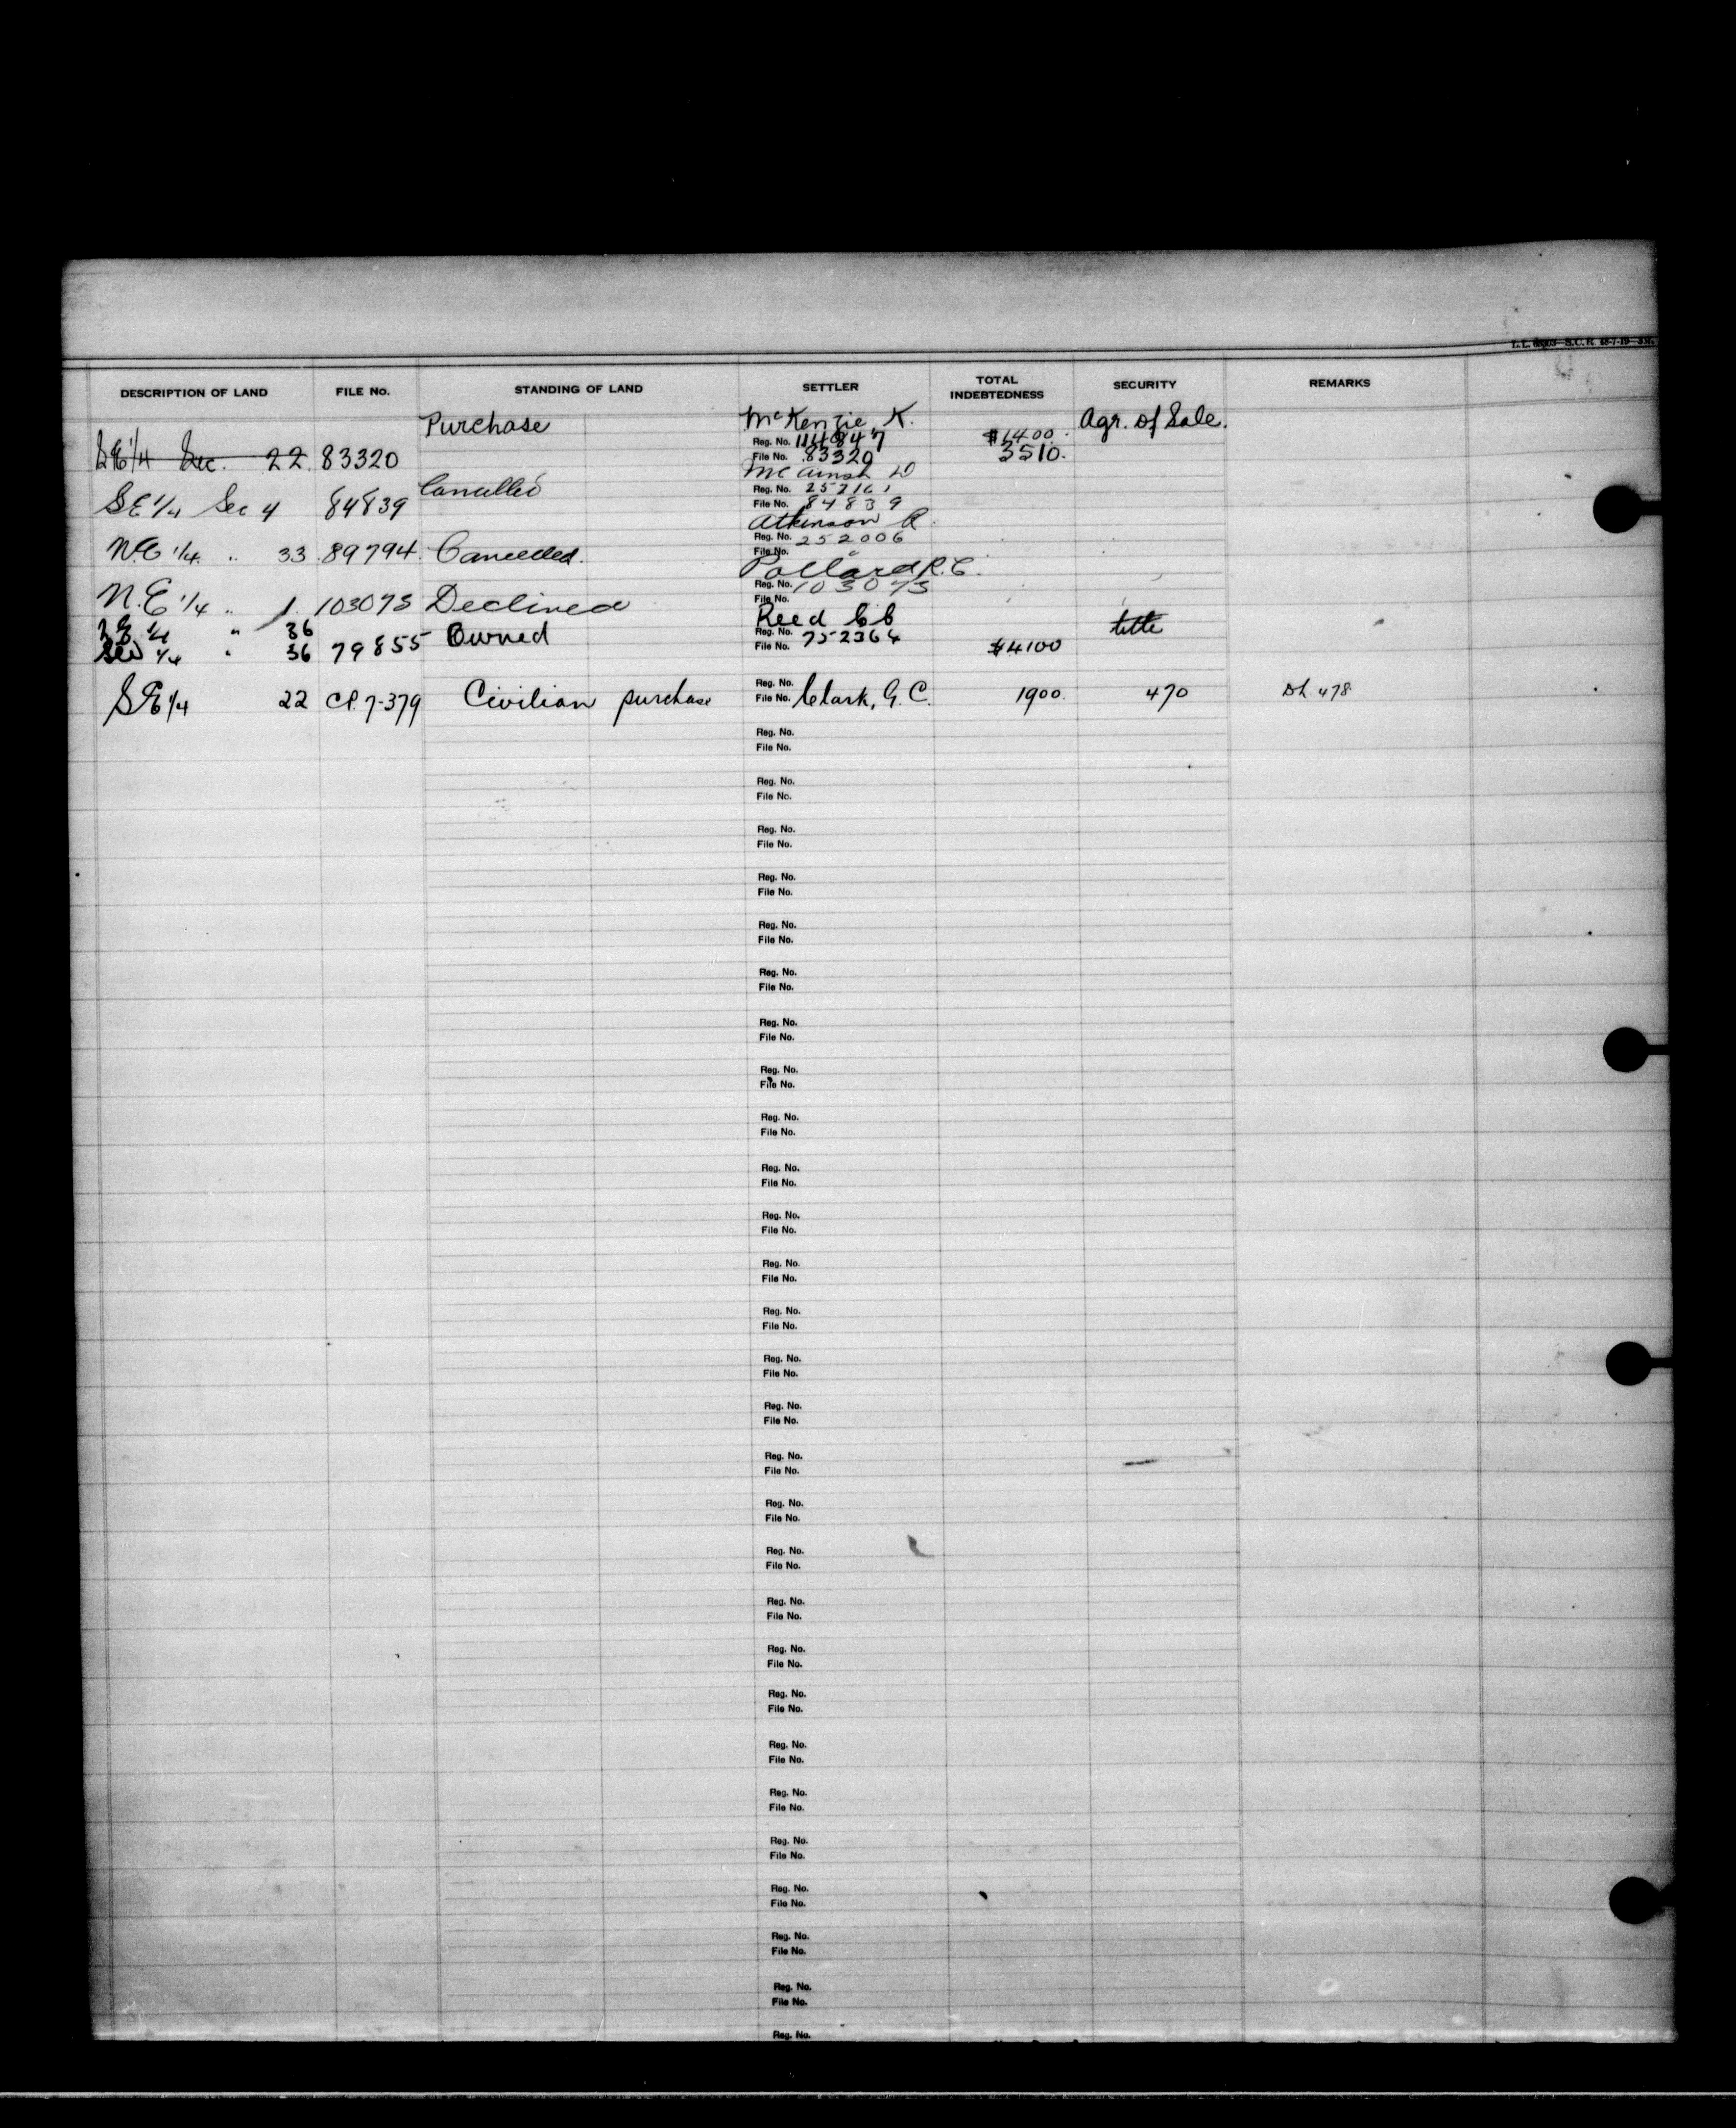 DESCRIPTION OF LAND FILE No. STANDING OF LAND SETTLER TOTAL INDEBTEDNESS SECURITY REMARKS
Purchase McKenzie, K. Agr. of Sale.
Reg. No. $1400.
S.E 1/4 Sec. 22. 83320 File No. 83320 3510.
Cancelled Mc D
Reg. No.
S E 1/4 Sec 4 84839 File No. 84839
Atkinson R.
N.E 1/4 .. 33 89794. Cancelled. Reg. No. 252006
File No.
Pollard R. C.
N.E 1/4 .. 1. 103073 Declined Reg. No. 103073
File No.
1/4 " 36 Owned Reed C C title
SW 1/4 " 36 79855 Reg. No. 752364
File No. $4100
Reg. No.
S E 1/4 22 CP. 7-379 Civilian purchase File No. Clark, G. C. 1900. 470 478
Reg. No.
File No.
Reg. No.
File No.
Reg. No.
File No.
Reg. No.
File No.
Reg. No.
File No.
Reg. No.
File No.
Reg. No.
File No.
Reg. No.
File No.
Reg. No.
File No.
Reg. No.
File No.
Reg. No.
File No.
Reg. No.
File No.
Reg. No.
File No.
Reg. No.
File No.
Reg. No.
File No.
Reg. No.
File No.
Reg. No.
File No.
Reg. No.
File No.
Reg. No.
File No.
Reg. No.
File No.
Reg. No.
File No.
Reg. No.
File No.
Reg. No.
File No.
Reg. No.
File No.
Reg. No.
File No.
Reg. No.
File No.
Reg. No.
File No.
Reg. No.